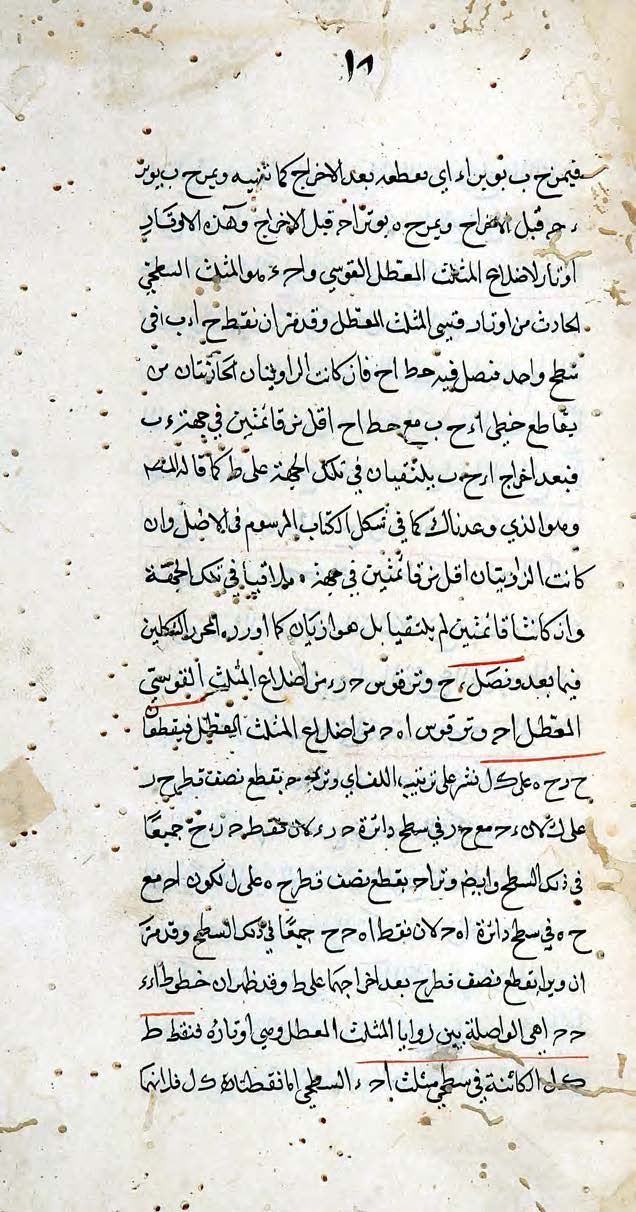 ١٨
فيمر ح ب بوتر اء اي يقطعه بعد الاخراج كما نبنيه ويمر ح ب بوتر
ء ح قبل الاخراج ويمر ح ه بوتر اح قبل الاخراج وهذه الاوتار
اوتار لاضلاع المثلث المعتطل القوسي واح ء هو المثلث السطحي
الحادث من اوتار قسي المثلث المعتطل وقد مر ان نقط ح ا ب افي
سطح واحد فنصل فيه خط اح فان كانت الزاويتان الحادثتان من
تقاطع خطي اء ح ب مع خط اح اقل من قائمتين في جهة ء ب
فبعد اخراج اء ح ب يلتقيان في تلك الجهة على ط كما قاله المص
وهو الذي وعدناك كما في شكل الكتاب المرسوم في الاصل وان
كانت الزاويتان اقل من قائمتين في جهة ه يلاقيا في تلك الجهة
وان كانتا قائمتين لم يلتقيا بل هوازيان كما اورده المحرر الشكلين
فيما بعد ونصل ء ح وتر قوس ح ر ء من اضلاع المثلث القوسي
المعطل اح وتر قوس ا ه ح من اضلاع المثلث المعطل فيقطعان
ح ر ح ه على ك ل نشر على ترتيب اللف اي وتر ء ح يقطع نصف قطر ح ر
على ك لان ء ح مع ح ر في سطح دائرة ح ر ء لان نقط ح ر ء ح جميعا
في ذلك السطح وايض وتر اح يقطع نصف قطر ح ه على ل لكون اح مع
ح ه في سطح دائرة ا ه ح لان نقط ا ه ح ح جميعا في ذلك السطح وقد مر
ان وتر اء يقطع نصف قطر ح بعد اخراجهما على ط وقد ظهر ان خطوط اء ء
ح ح ا هي الواصلة بين زوايا المثلث المعطل وهي اوتاره فنقط ط
ك ل الكائنة في سطحي مثلث اح ء السطحي اما نقطتا ك ل فلانهما